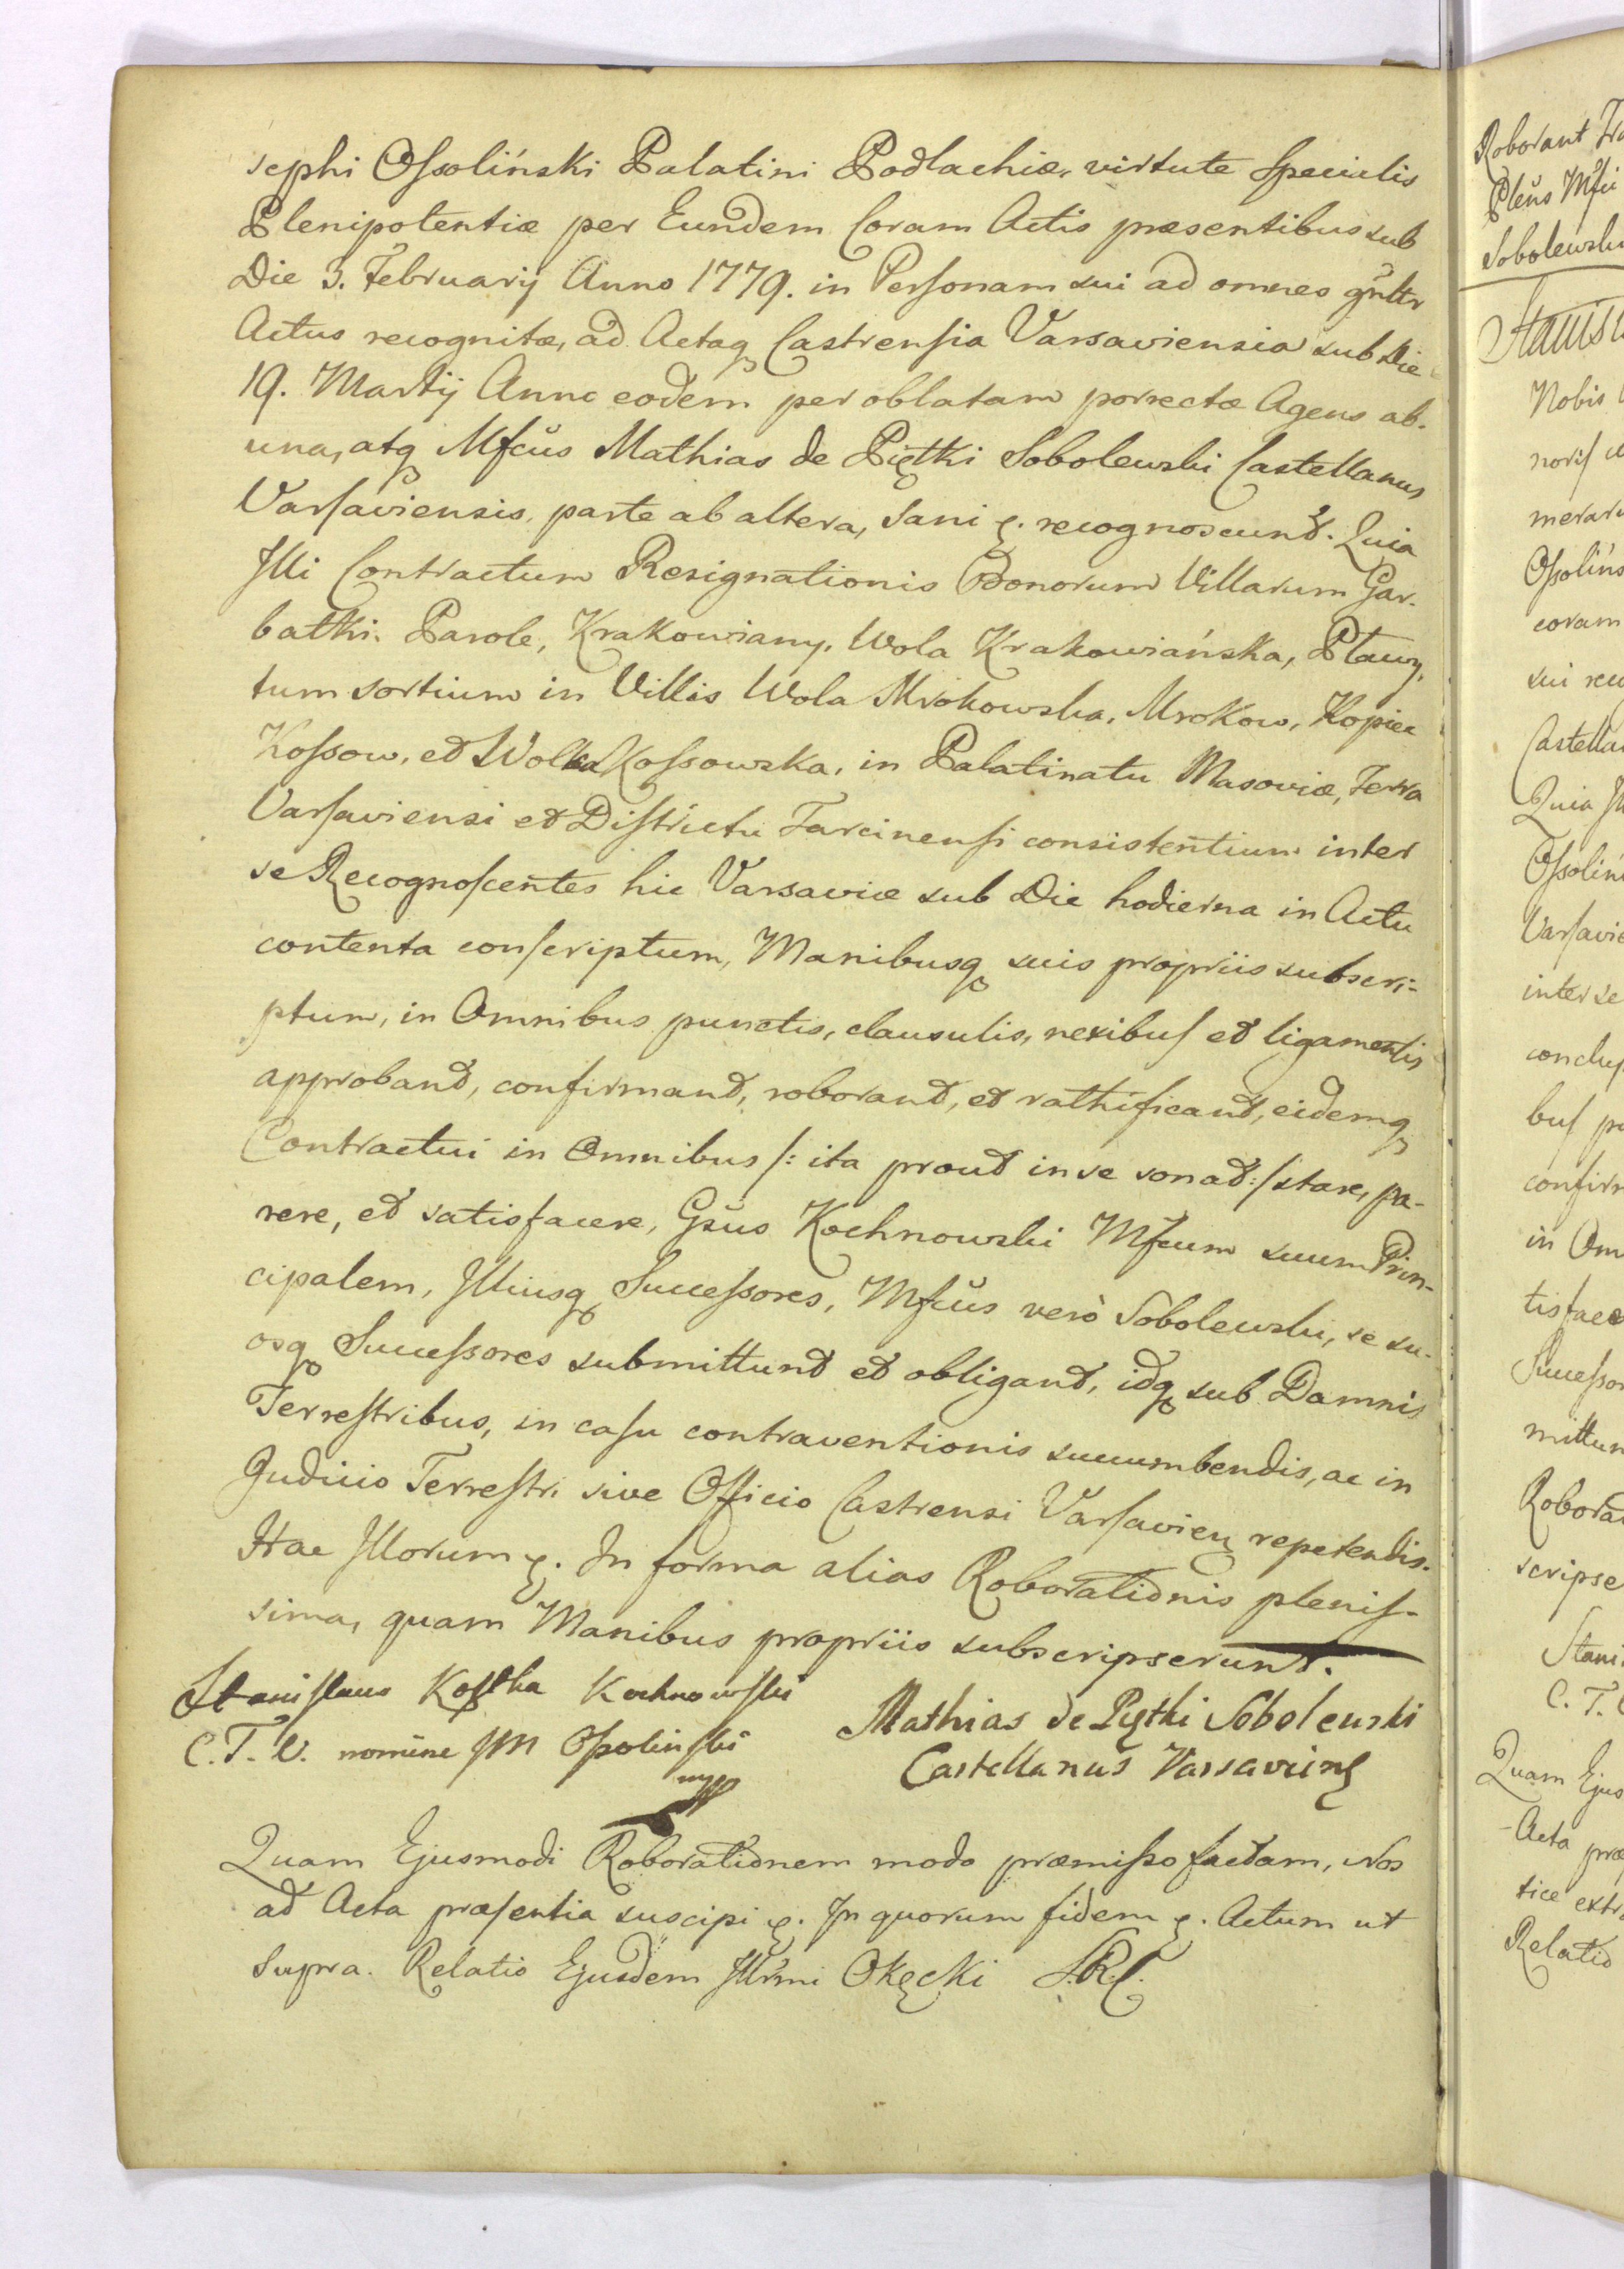 sephi Ossoliński Palatini Podlachiæ, virtute specialis
Plenipotentiæ per Eundem Coram Actis præsentibus sub
Die 3. Februarij Anno 1779. in Personam sui ad omnes gnltr
Actus recognitæ, ad Actaq Castrensia Varsaviensia sub Die
19. Martij Anno eodem per oblatam porrectæ Agens ab
una, atq Mfcus Mathias de Piętki Sobolewski Castellanus
Varsaviensis, parte ab altera, Sani ę. recognoscunt. Quia
Illi Contractum Resignationis Bonorum Villarum Gar-
batki. Parole, Krakowiany, Wola Krakowiańska,
tum sortium in Villis Wola Mrokowska, Mrokow, Kopiec
Kossow, et Wolka Kossowska, in Palatinatu Masoviæ, Terra
Varsaviensi et Districtu Tarcinensi consistentium inter
se Recognoscentes hic Varsaviæ sub Die hodierna in Actu
contenta conscriptum, Manibusq suis propriis subscri-
ptum, in Omnibus punctis, clausulis, nexibus et ligamentis
approbant, confirmant, roborant, et rathificant, eidemq
Contractui in Omnibus /: ita prout in se sonat :/ stare, pa-
rere, et satisfacere, Gsus Kochnowski Mfcum suum Prin-
cipalem, Illiusq Successores, Mfcus verò Sobolewski, se su-
osq Successores submittunt et obligant, idq sub Damnis
Terrestribus, in casu contraventionis succumbendis, ac in
Judicio Terrestri sive Officio Castrensi Varsavien repetendis.
Hac Illorum ę. In forma alias Roborationis plenis-
sima, quam Manibus propriis subscripserunt.
Stanislaus Kostka Kochnowski
C. T. V. nomine JM Ossolinski
mpp
Mathias de Pętki Sobolewski
Castellanus Varsavien
Quam Ejusmodi Roborationem modo præmisso factam, Nos
ad Acta præsentia suscipi ę. In quorum fidem ę. Actum ut
Supra. Relatio Ejusdem Illrmi Okęcki S.R.C.
Roborant
Plens Mfci
Sobolewski
Nobis
Ossolins
coram
Quia
inter se
in Om
Roborat
scripse
C. T.
Quam Ejus
Acta præ
tice extra
Relatio